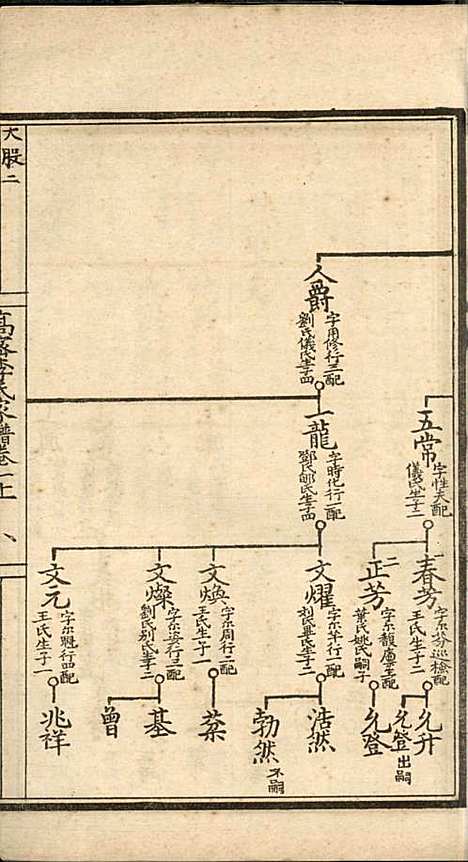 五常
字性夫配
儀氏生子二
一春芳
字尔芬巡檢配
王氏生子二
允升
允登出嗣
二正芳
字尔馥廩生配
葉氏姚氏嗣子
允登
人爵
字用修行三配
劉氏儀氏生子四
一龍
字時化行一配
鄧氏邮氏生子四
文耀
字尔芊行一配
刘氏單氏生子二
浩然
勃然不嗣
文煥
字尔周行二配
王氏生子一
蓁
文燦
字尔姿行三配
劉氏别氏生子二
基
曽
文元
字尔魁行四配
王氏生子一
兆祥
大股二
高密李氏家譜卷二上